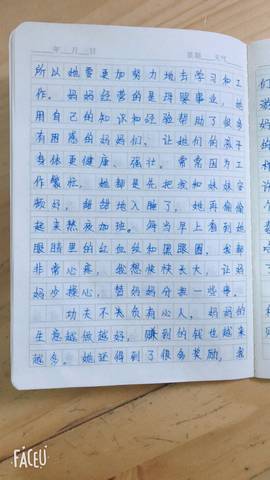 年 月 日 星期 天气
所以她要更加努力地去学习和工
作。妈妈经营的是母婴事业，她
用自己的知识和经验帮助了很多
有困惑的妈妈们，让她们的孩子
身体更健康、强壮。常常因为工
作繁忙，她都是先把我和妹妹安
顿好，甜甜地入睡了，她再偷偷
起来熬夜加班。每当早上看到她
眼睛里的红血丝和黑眼圈，我都
非常心疼，我想快快长大，让妈
妈少操心，替妈妈分担一些事。
功夫不负有心人，妈妈的
生意越做越好，赚到的钱也越来
越多。她还得到了很多奖励，我
们
妈
的
FACEU